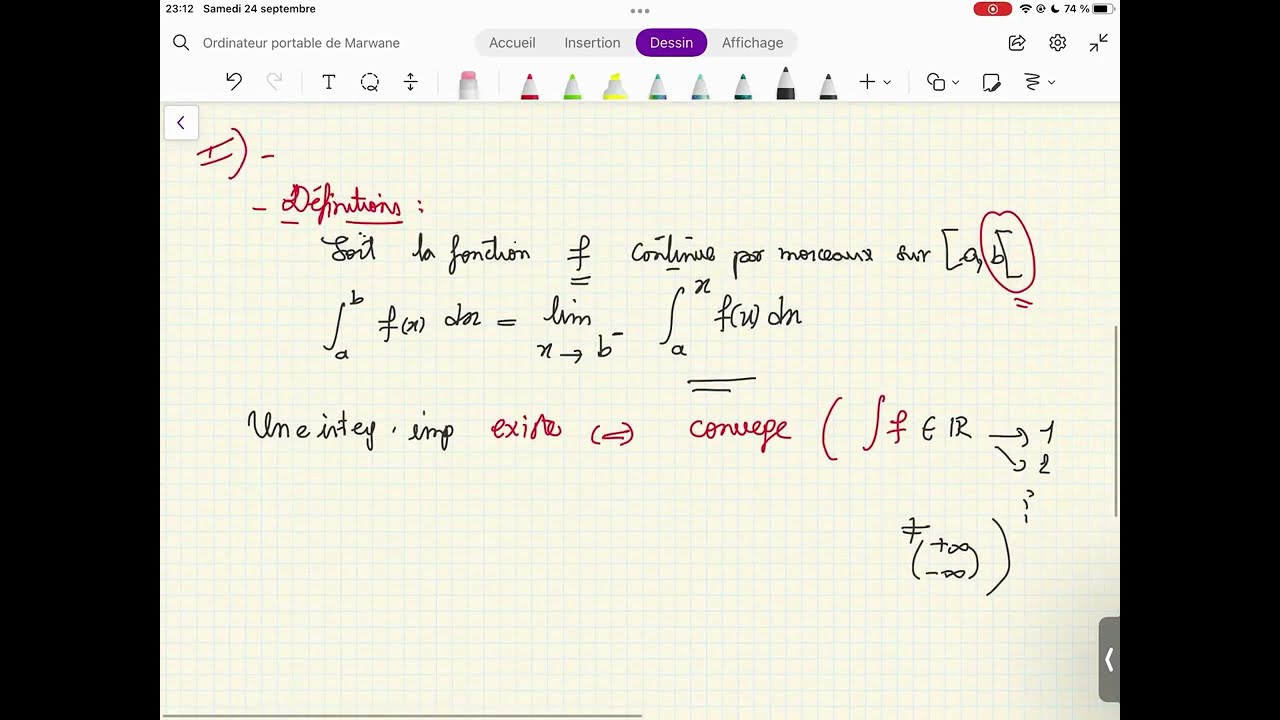 23:12 Samedi 24 septembre
74 %
Ordinateur portable de Marwane
Accueil Insertion Dessin Affichage
I) -
- Définitions :
Soit la fonction f continue par morceaux sur [a, b[
∫_a^b f(x) dx = lim_{x → b⁻} ∫_a^x f(x) dx
Une integ. imp existe ⇔ convege ( ∫ f ∈ IR → 1
↘ 2
⋮
≠ ( +∞
-∞ ) )